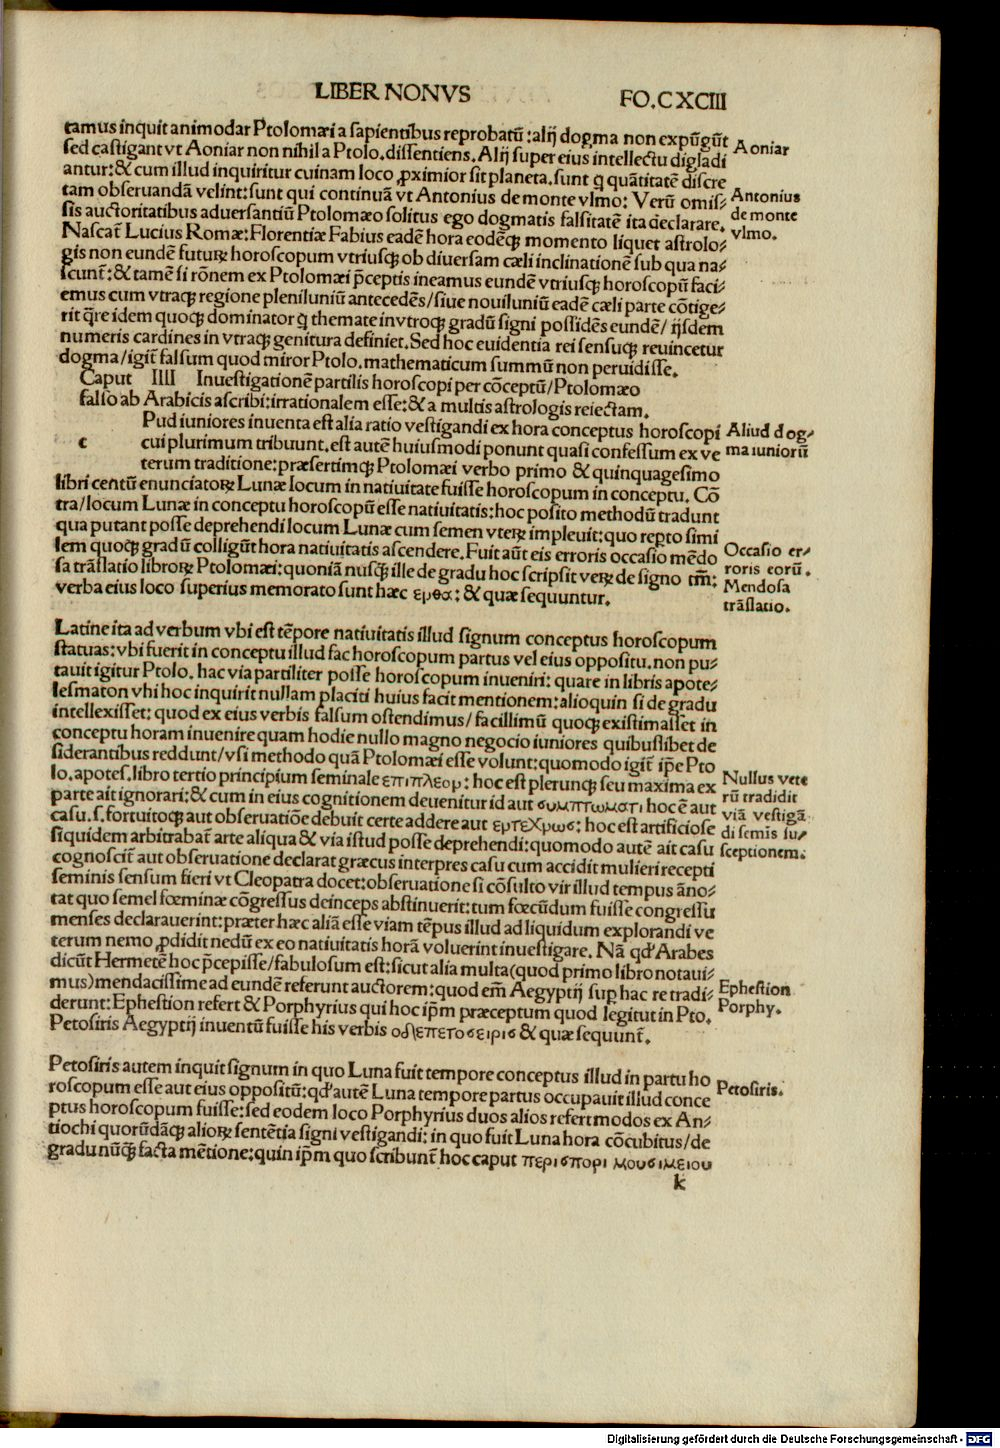 LIBER NONVS
FO.CXCIII
tamus inquit animodar Ptolomæi a sapientibus reprobatū:alij dogma non expūgūt
sed castigant vt Aoniar non nihil a Ptolo.dissentiens.Alij super eius intellectu digladi
antur:& cum illud inquiritur cuinam loco ꝓximior sit planeta.sunt q̄ quātitatē discre
tam obseruandā velint:sunt qui continuā vt Antonius de monte vlmo: Verū omis/
sis auctoritatibus aduersantiū Ptolomæo solitus ego dogmatis falsitatē ita declarare.
Nascat̄ Lucius Romæ:Florentiæ Fabius eadē hora eodēq; momento liquet astrolo/
gis non eundē futurꝝ horoscopum vtriusq; ob diuersam cæli inclinationē sub qua na/
scunt̄:& tamē si rōnem ex Ptolomæi p̄ceptis ineamus eundē vtriusq; horoscopū faci/
emus cum vtraq; regione pleniluniū antecedēs/siue nouiluniū eadē cæli parte cōtige/
rit q̄re idem quoq; dominator q̄ themate in vtroq; gradū signi possidēs eundē/ ijsdem
numeris cardines in vtraq; genitura definiet.Sed hoc euidentia rei sensuq; reuincetur
dogma/igit̄ falsum quod miror Ptolo.mathematicum summū non peruidisse.
Caput IIII Inuestigationē partilis horoscopi per cōceptū/Ptolomæo
falso ab Arabicis ascribi:irrationalem esse:& a multis astrologis reiectam.
Pud iuniores inuenta est alia ratio vestigandi ex hora conceptus horoscopi
c cui plurimum tribuunt.est autē huiusmodi ponunt quasi confessum ex ve
terum traditione:præsertimq; Ptolomæi verbo primo & quinquagesimo
libri centū enunciatorꝝ Lunæ locum in natiuitate fuisse horoscopum in conceptu. Cō
tra/locum Lunæ in conceptu horoscopū esse natiuitatis:hoc posito methodū tradunt
qua putant posse deprehendi locum Lunæ cum semen vterꝝ impleuit:quo repto simi
lem quoq; gradū colligūt hora natiuitatis ascendere.Fuit aūt eis erroris occasio mēdo
sa trāslatio librorꝝ Ptolomæi:quoniā nusq̄ ille de gradu hoc scripsit verꝝ de signo tm̄:
verba eius loco superius memorato sunt hæc ερθα: & quæ sequuntur.
Latine ita ad verbum vbi est tēpore natiuitatis illud signum conceptus horoscopum
statuas:vbi fuerit in conceptu illud fac horoscopum partus vel eius oppositu.non pu/
tauit igitur Ptolo. hac via partiliter posse horoscopum inueniri: quare in libris apote/
lesmaton vbi hoc inquirit nullam placiti huius facit mentionem:alioquin si de gradu
intellexisset: quod ex eius verbis falsum ostendimus/ facillimū quoq; existimasset in
conceptu horam inuenire quam hodie nullo magno negocio iuniores quibuslibet de
siderantibus reddunt/vsi methodo quā Ptolomæi esse volunt:quomodo igit̄ ip̄e Pto
lo.apotes.libro tertio principium seminale επιπλεορ: hoc est plerunq; seu maxima ex
parte ait ignorari:& cum in eius cognitionem deuenitur id aut συμπτωματι hoc ē aut
casu.s.fortuitoq; aut obseruatiōe debuit certe addere aut ερτεχρωσ: hoc est artificiose
siquidem arbitrabat̄ arte aliqua & via istud posse deprehendi:quomodo autē ait casu
cognoscit̄ aut obseruatione declarat græcus interpres casu cum accidit mulieri recepti
seminis sensum fieri vt Cleopatra docet:obseruatione si cōsulto vir illud tempus āno/
tat quo semel fœminæ cōgressus deinceps abstinuerit:tum fœcūdum fuisse congressu
menses declarauerint:præter hæc aliā esse viam tēpus illud ad liquidum explorandi ve
terum nemo ꝓdidit nedū ex eo natiuitatis horā voluerint inuestigare. Nā qd' Arabes
dicūt Hermetē hoc p̄cepisse/fabulosum est:sicut alia multa(quod primo libro notaui/
mus)mendacissime ad eundē referunt auctorem:quod em̄ Aegyptij sup hac re tradi/
derunt:Ephestion refert & Porphyrius qui hoc ip̄m præceptum quod legitur in Pto.
Petosiris Aegyptij inuentū fuisse his verbis οδεπετοσειρισ & quæ sequunt̄.
Petosiris autem inquit signum in quo Luna fuit tempore conceptus illud in partu ho
roscopum esse aut eius oppositū:qd'autē Luna tempore partus occupauit illud conce
ptus horoscopum fuisse:sed eodem loco Porphyrius duos alios refert modos ex An/
tiochi quorūdāq; aliorꝝ sentētia signi vestigandi: in quo fuit Luna hora cōcubitus/de
gradu nūq̄ facta mētione:quin ip̄m quo scribunt̄ hoc caput περισπορι μουσιμειου
k
Aoniar
Antonius
de monte
vlmo.
Aliud dog/
ma iuniorū
Occasio er/
roris eorū.
Mendosa
trāslatio.
Nullus vete
rū tradidit
viā vestigā
di semis su/
sceptionem.
Ephestion
Porphy.
Petosiris.
Digitalisierung gefördert durch die Deutsche Forschungsgemeinschaft - DFG